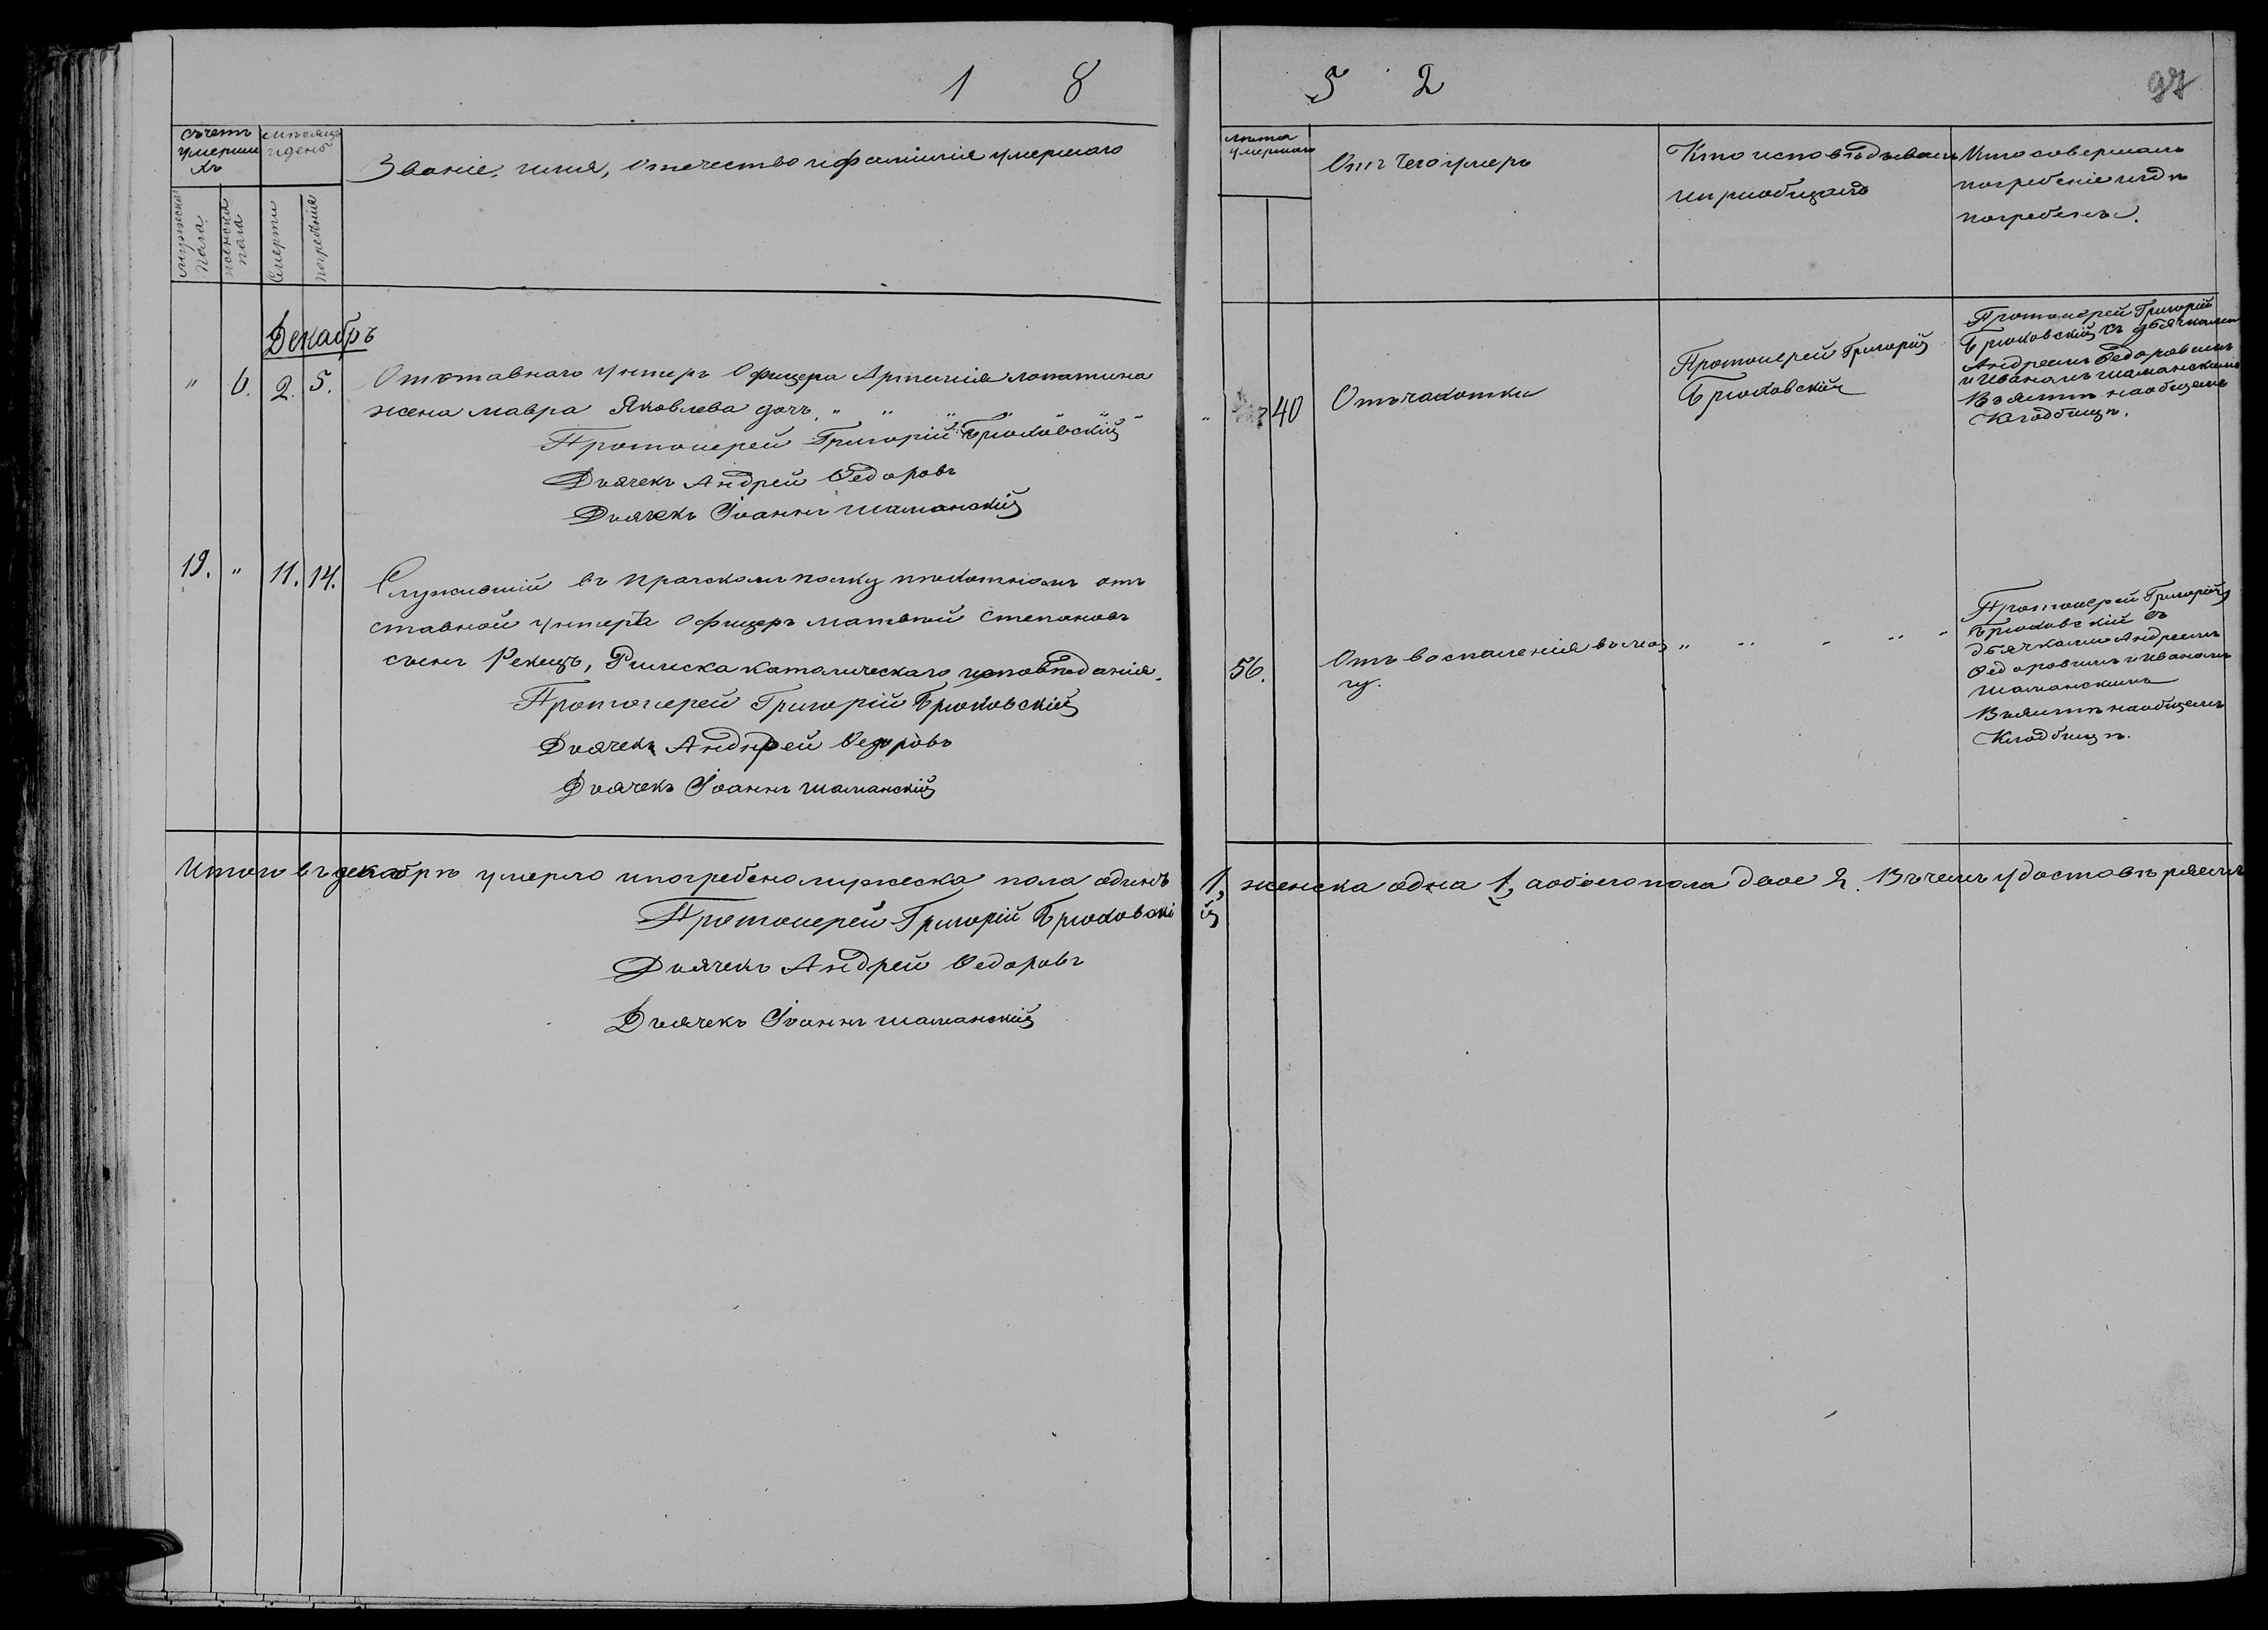 1 8 5 2
97
Счетъ умершихъ
мужеска пола
женска пола
мѣсяцъ и день
Смерти
погребенія
Званіе, имя, отечество и фамилія умершаго
лѣта умершаго
Отъ чего умеръ
Кто исповѣдывалъ
и приобщалъ
Кто совершалъ
погребеніе и гдѣ
погребенъ.
Декабрь
" 6. 2. 5.
Отставнаго унтеръ Офицера Артемія лопатина
жена мавра Яковлева дочь " " " " " "
Протоиерей Григорій Брюховскій
Дьячекъ Андрей Ѳедоровъ
Дьячекъ Іоаннъ шаманскій
" 40
Отъ чахотки
Протоиерей Григорій
Брюховскій
Протоиерей Григорій
Брюховскій съ дьячками
Андреемъ Ѳедоровымъ
и Иваномъ шаманскимъ
Въ ямѣ на общемъ
Кладбищѣ.
19. " 11. 14.
Служившій въ прагскомъ полку пѣхотномъ от
ставной унтеръ Офицеръ матвѣй Степановъ
сынъ Рекецъ, Римска католическаго исповѣданія.
Протоиерей Григорій Брюховскій
Дьячекъ Андрей Ѳедоровъ
Дьячекъ Іоаннъ шаманскій
56.
Отъ воспаленія въ моз
гу.
" " " " "
Протоиерей Григорій
Брюховскій съ
дьячками Андреемъ
Ѳедоровымъ и Иваномъ
шаманскимъ
Въ ямѣ на общемъ
Кладбищѣ.
Итого въ декабрѣ умерло и погребено мужеска пола одинъ 1, женска одна 1, а обоего пола двое 2. Въ чемъ удостовѣряемъ
Протоиерей Григорій Брюховскій
Дьячекъ Андрей Ѳедоровъ
Дьячекъ Іоаннъ шаманскій